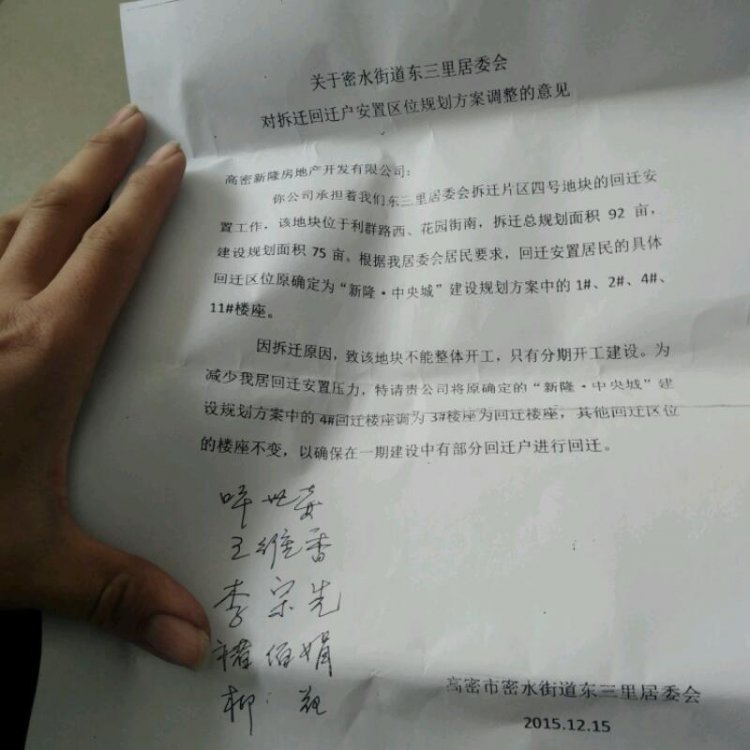 关于密水街道东三里居委会
对拆迁回迁户安置区位规划方案调整的意见
高密新隆房地产开发有限公司：
你公司承担着我们东三里居委会拆迁片区四号地块的回迁安
置工作，该地块位于利群路西、花园街南，拆迁总规划面积 92 亩，
建设规划面积 75 亩、根据我居委会居民要求，回迁安置居民的具体
回迁区位原确定为“新隆·中央城”建设规划方案中的 1#、2#、4#、
11#楼座。
因拆迁原因，致该地块不能整体开工，只有分期开工建设。为
减少我居回迁安置压力，特请贵公司将原确定的“新隆·中央城”建
设规划方案中的 4#回迁楼座调为 3#楼座为回迁楼座，其他回迁区位
的楼座不变，以确保在一期建设中有部分回迁户进行回迁。
王维香
李宗先
褚佰娟
柳
高密市密水街道东三里居委会
2015.12.15